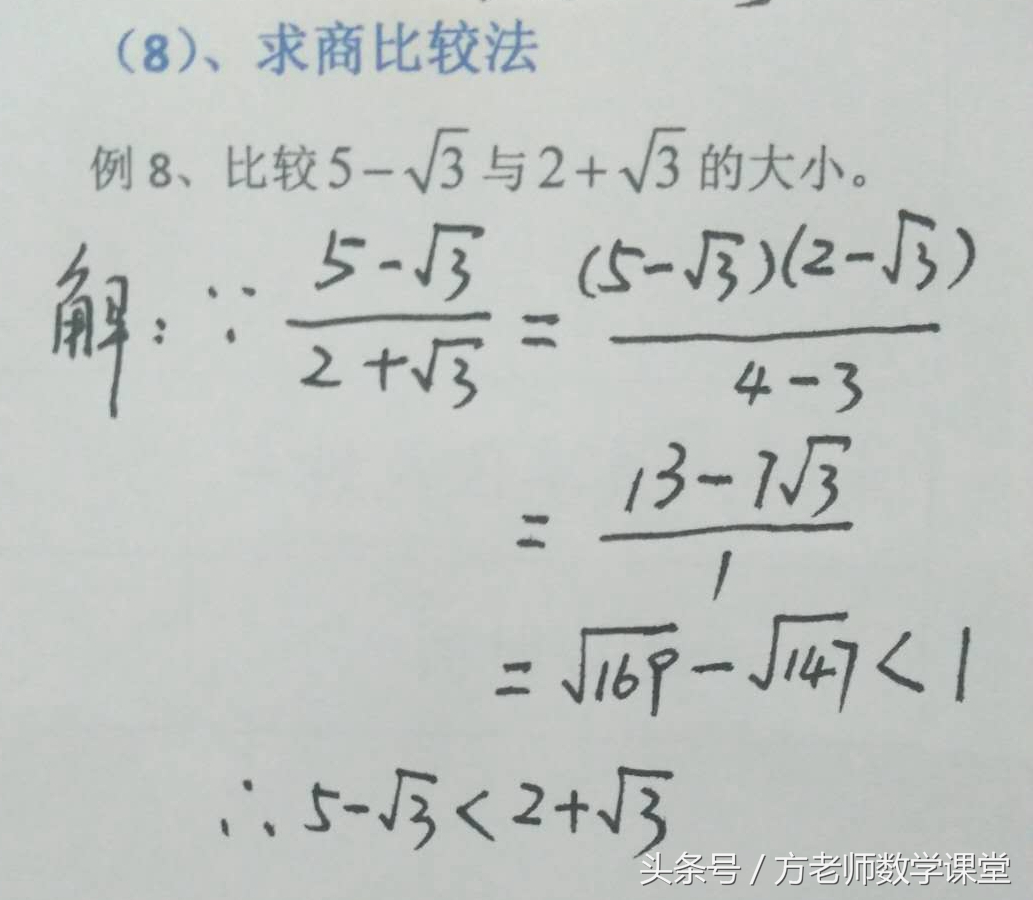 （8）、求商比较法
例 8、比较 5−√3 与 2+√3 的大小。
解：∵ (5-√3)/(2+√3) = (5-√3)(2-√3)/(4-3)
= (13-7√3)/1
= √169 - √147 < 1
∴ 5-√3 < 2+√3
头条号 / 方老师数学课堂